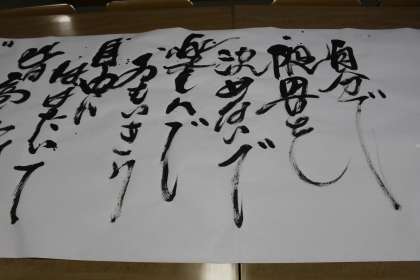 自分で
限界を
決めないで
楽しんで
おもいきり
自由に
はばたいて